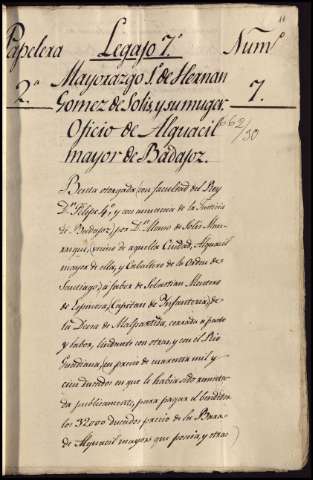 11
Papelera Legajo 7.º Num.º
2.ª Mayorazgo 1.º de Hernan 7.
Gomez de Solis, y su muger.
Oficio de Alguacil 662/30
mayor de Badajoz.
Benta otorgada (con facultad del Rey
Dn. Felipe 4.º, y con anuencia de la Justicia
de Badajoz) por Dn. Alonso de Solis
vecino de aquella Ciudad, Alguacil
mayor de ella, y Caballero de la Orden de
Santiago; a favor de Sebastian Montero
de Espinosa, Capitan de Infanteria; de
la Deesa de Malpartida, cerrada a pasto
y labor, lindante con otras, y con el Rio
Guadiana; en precio de quarenta mil y
cien ducados en que le habia sido remata-
da publicamente; para pagar el
los 32000 ducados precio de la Bara
de Alguacil mayor, que poseia, y otras